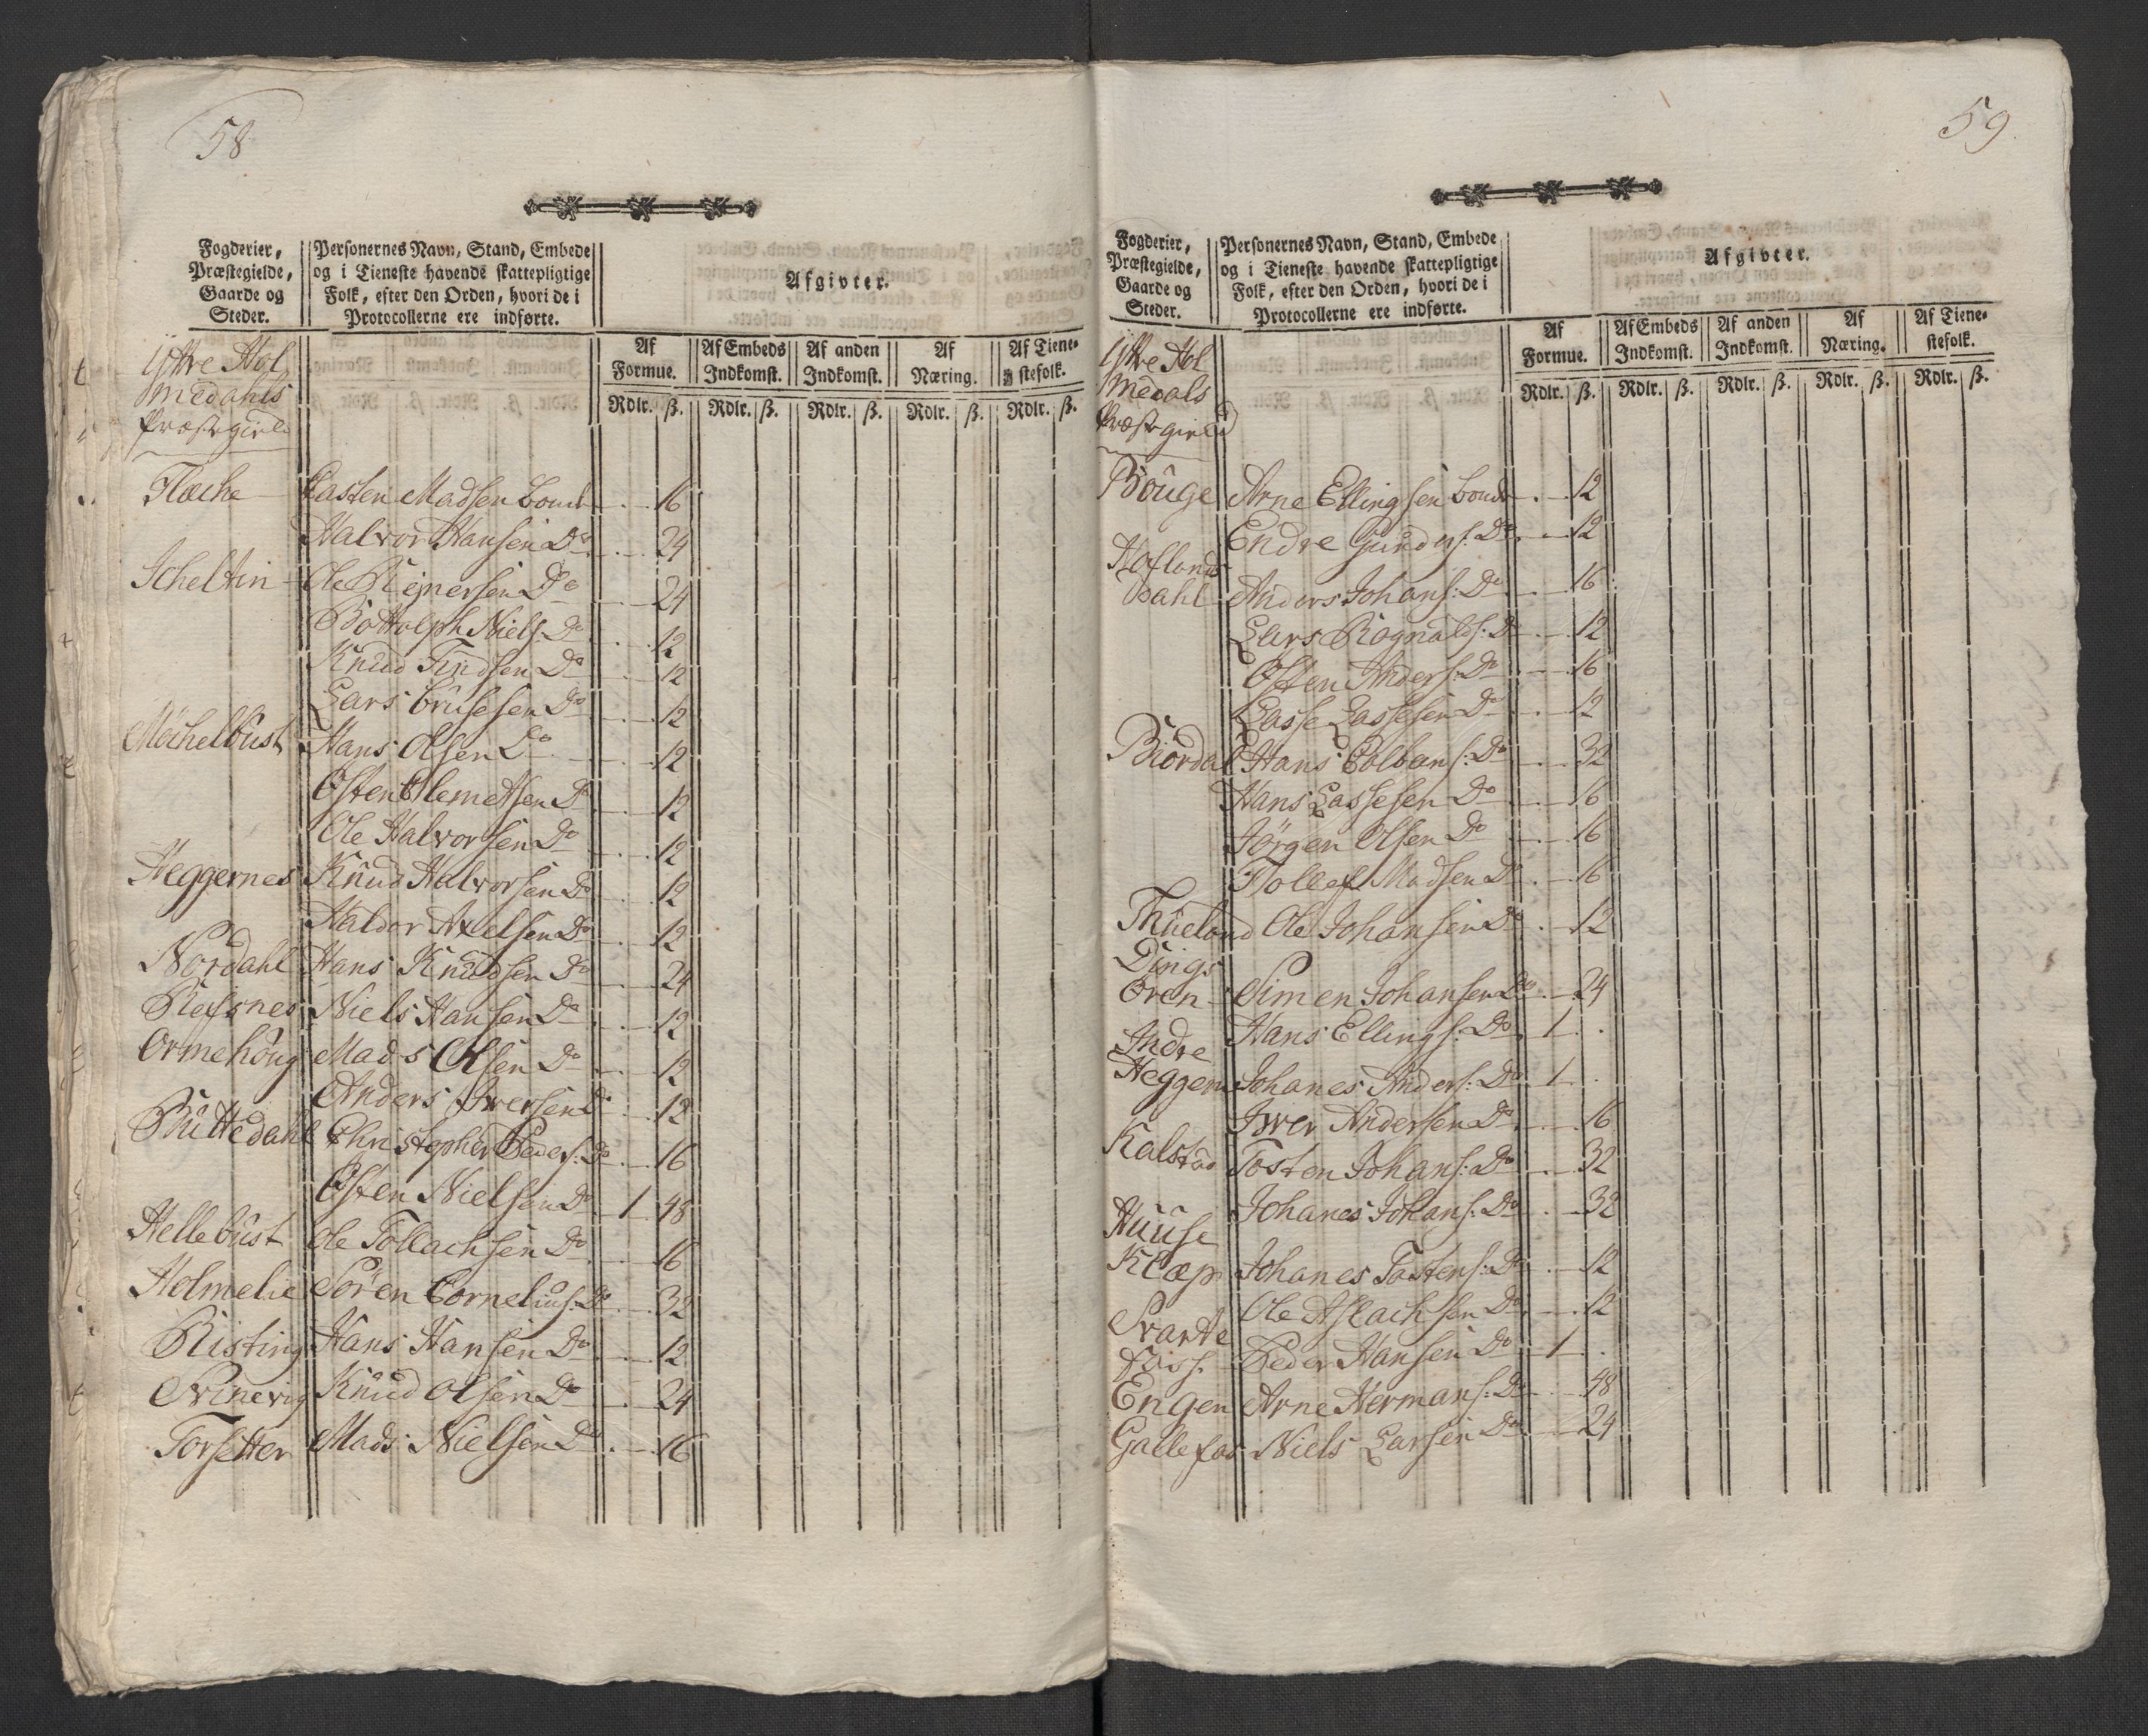 58
Fogderier,
Præstegielde,
Gaarde og
Steder.
Personernes Navn, Stand, Embede
og i Tieneste havende skattepligtige
Folk, efter den Orden, hvori de i
Protocollerne ere indførte.
Afgivter.
Af
Formue.
Af Embeds
Indkomst.
Af anden
Indkomst.
Af
Næring.
Af Tiene-
stefolk.
Rdlr. ß. Rdlr. ß. Rdlr. ß. Rdlr. ß. Rdlr. ß.
Ÿttre Hol
medahls
Præstegield
Flæche Casten Madsen Bonde 16
Halvor Hansen Do 24
Scheltin Ole Reinersen Do 24
Bottolph Niels: Do 12
Knud Findsen Do 12
Lars Crusesen Do 12
Möchelbust Hans Olsen Do 12
Östen Clemetsen Do 12
Ole Halvorsen Do 12
Heggernes Knud Halvorsen Do 12
Haldor Axelsen Do 12
Nordahl Hans Knudsen Do 24
Refsnes Niels Hansen Do 12
Ormehöug Mads Olsen Do 12
Anders Iversen Do 12
Buttedahl Christopher Peders: Do 16
Östen Nielsen Do 1 48
Hellebust Ole Tollachsen Do 16
Holmelie Sören Cornelius: Do 32
Risting Hans Hansen Do 12
Svinevig Knud Olsen Do 24
Torsetter Mads Nielsen Do 16
59
Fogderier,
Præstegielde,
Gaarde og
Steder.
Personernes Navn, Stand, Embede
og i Tieneste havende skattepligtige
Folk, efter den Orden, hvori de i
Protocollerne ere indførte.
Afgivter.
Af
Formue.
Af Embeds
Indkomst.
Af anden
Indkomst.
Af
Næring.
Af Tiene-
stefolk.
Rdlr. ß. Rdlr. ß. Rdlr. ß. Rdlr. ß. Rdlr. ß.
Ÿttre Hol
medals
Præstegield
Bouge Arne Ellingsen Bonde 12
Endre Gunders: Do 12
Hoflands
Dahl Anders Johans: Do 16
Lars Rognalds: Do 12
Östen Anders: Do 16
Lasse Lassesen Do 12
Biordal Hans Colbens: Do 32
Hans Lassesen Do 16
Jörgen Olsen Do 16
Tollef Madsen Do 16
Thueland Ole Johansen Do 12
Dings
Oren Simen Johansen Do 24
Indre Hans Ellings: Do 1
Heggem Johanes Anders: Do 1
Iver Andersen Do 16
Kalstad Tosten Johans: Do 32
Johanes Johans: Do 32
Huuse
Klæp Johanes Tostens: Do 12
Ole Aslachsen Do 12
Svarte
foss Peder Hansen Do 1
Engen Arne Hermans: Do 48
Gallefos Niels Larsen Do 24